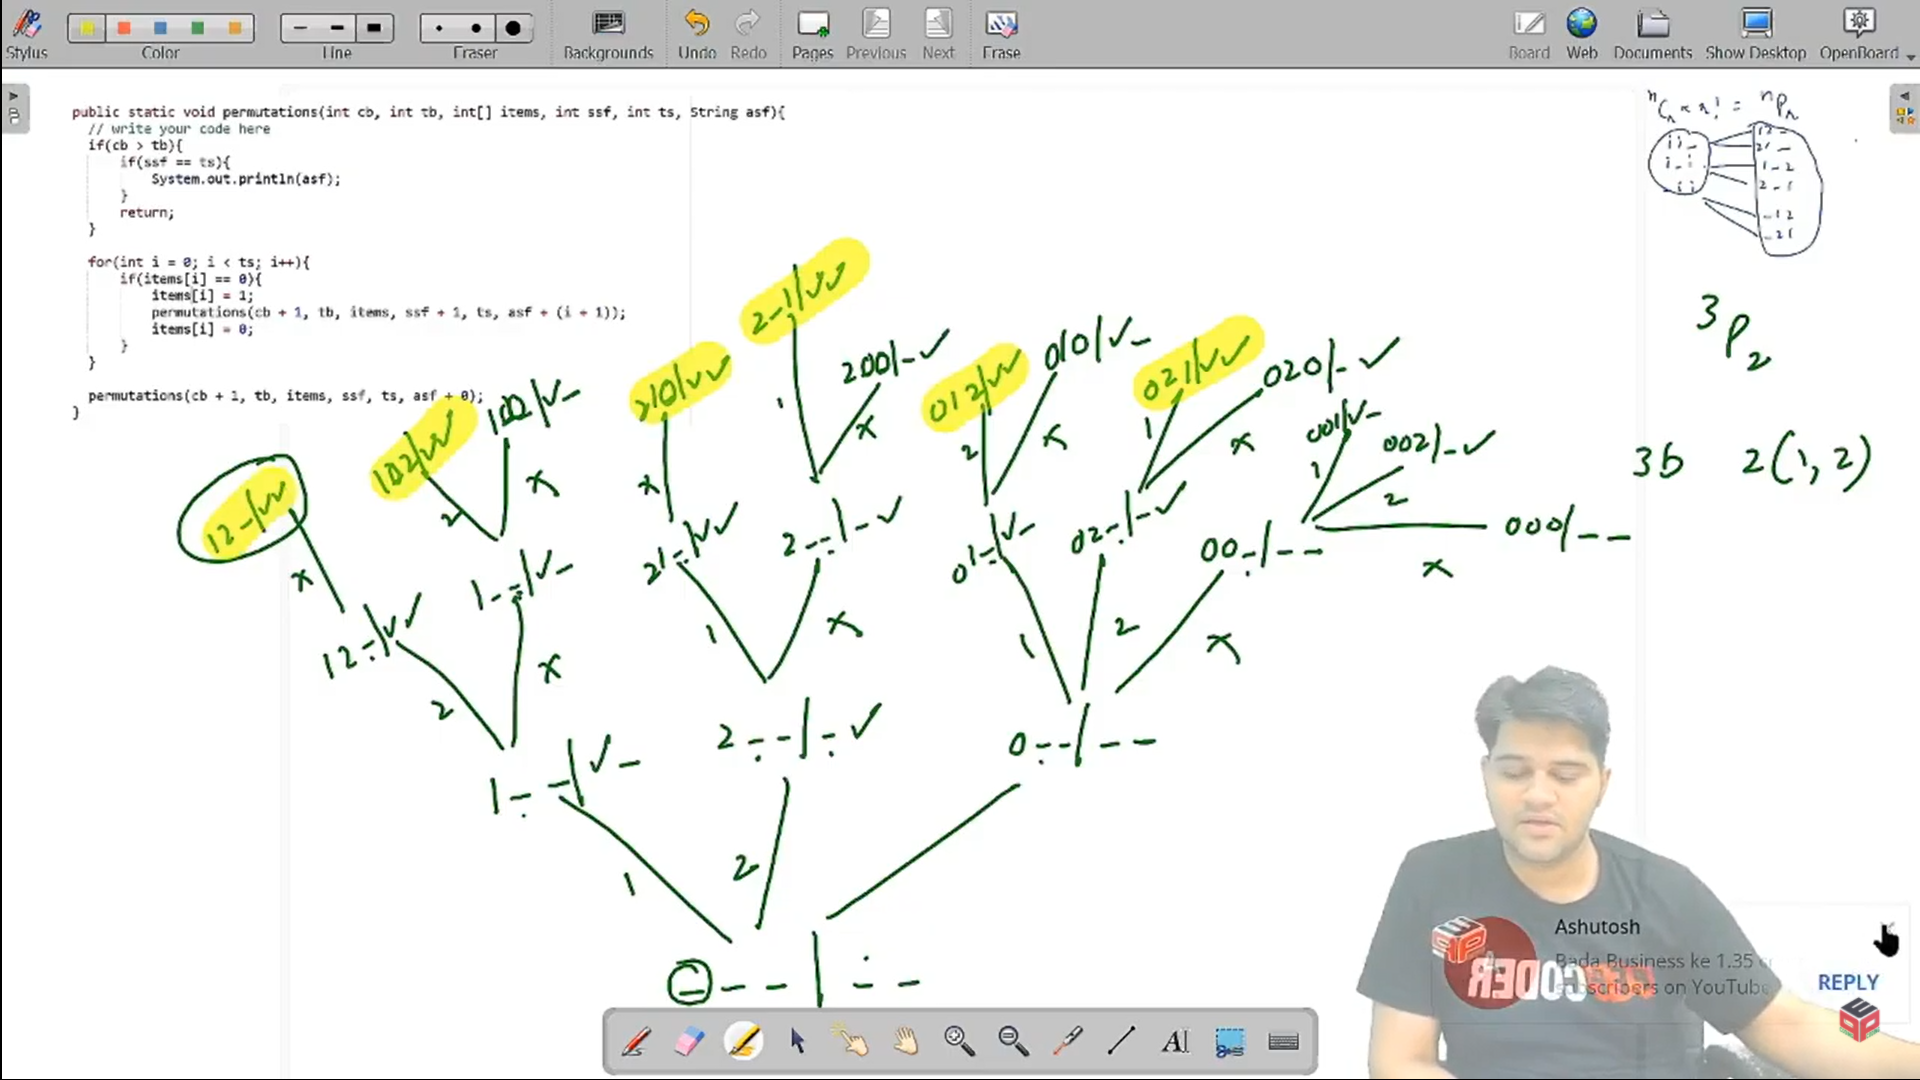 Stylus
Color
Line
Eraser
Backgrounds
Undo
Redo
Pages
Previous
Next
Erase
Board
Web
Documents
Show Desktop
OpenBoard
public static void permutations(int cb, int tb, int[] items, int ssf, int ts, String asf){
// write your code here
if(cb > tb){
if(ssf == ts){
System.out.println(asf);
}
return;
}
for(int i = 0; i < ts; i++){
if(items[i] == 0){
items[i] = 1;
permutations(cb + 1, tb, items, ssf + 1, ts, asf + (i + 1));
items[i] = 0;
}
}
permutations(cb + 1, tb, items, ssf, ts, asf + 0);
}
nCr × r! = nPr
ii_
i_i
_ii
12_
21_
1_2
2_1
_12
_21
3P2
3b 2(1, 2)
2-1/✓✓
200/-✓
210/✓✓
012/✓✓
010/✓-
021/✓✓
020/-✓
001/✓-
002/-✓
000/--
102/✓✓
100/✓-
12-/✓✓
1 x
2 x
1 x
1
2
x
x
2 x
x
12-/✓✓
1--/✓-
21-/✓✓
2--/-✓
01-/✓-
02-/-✓
00-/--
2 x
1 x
1 2 x
1--/✓-
2--/-✓
0--/--
1
2
---/--
Ashutosh
Bada Business ke 1.35 c
subscribers on YouTube
REPLY
CODER